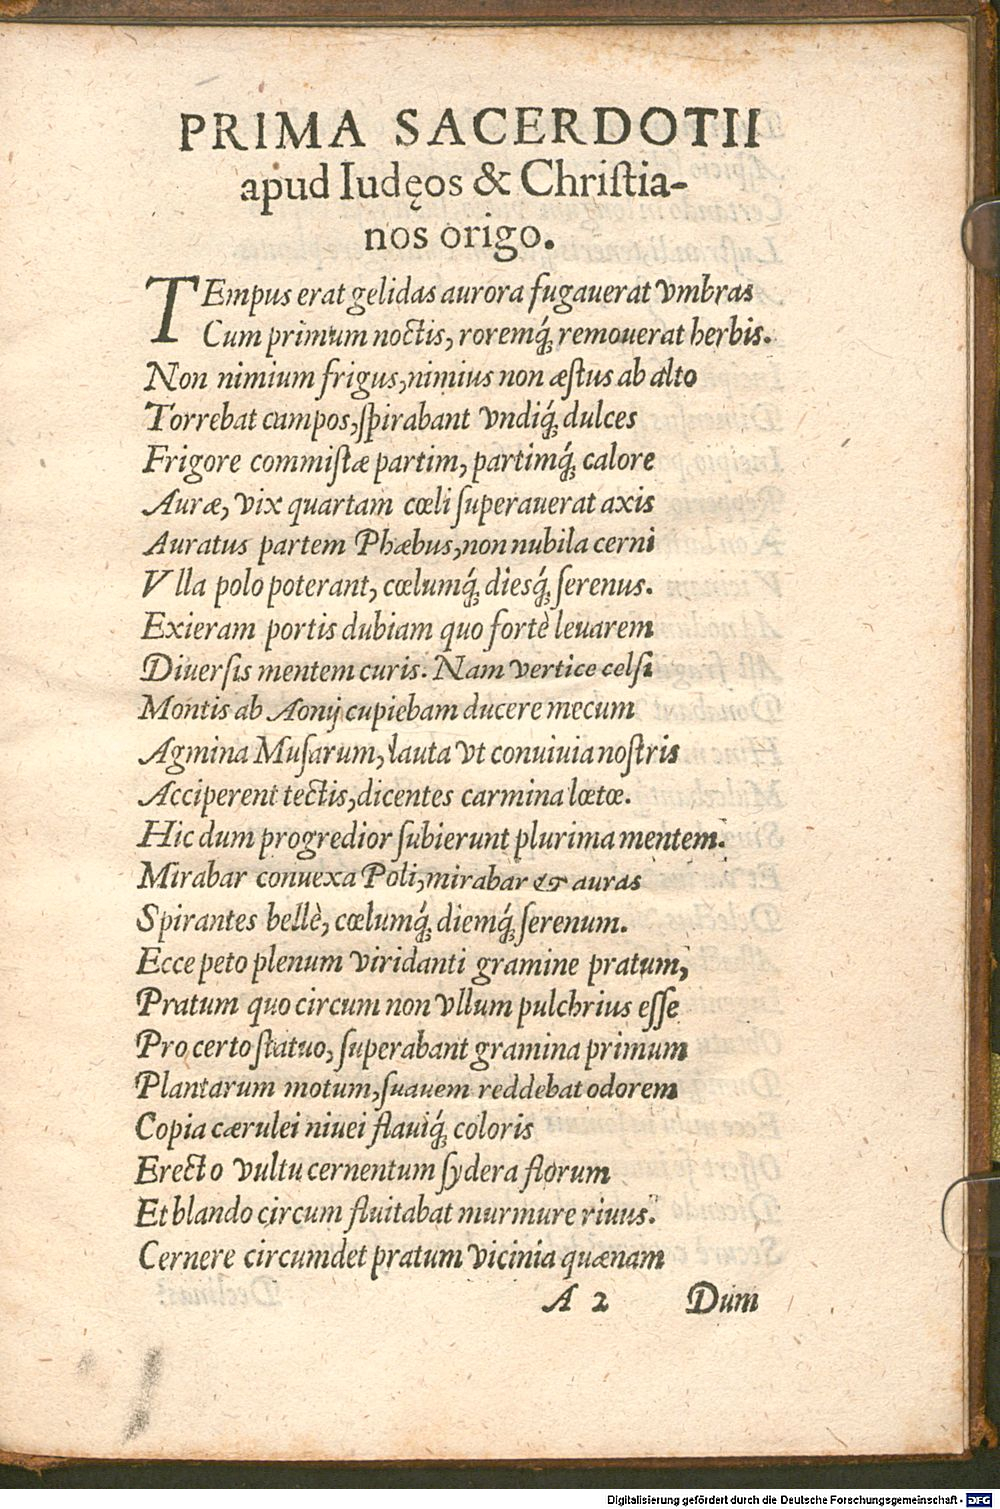 PRIMA SACERDOTII
apud Iudęos & Chriſtia-
nos origo.
TEmpus erat gelidas aurora fugauerat vmbras
Cum primum noctis, roremq́; remouerat herbis.
Non nimium frigus, nimius non æſtus ab alto
Torrebat campos, ſpirabant vndiq́; dulces
Frigore commiſtæ partim, partimq́; calore
Auræ, vix quartam cœli ſuperauerat axis
Auratus partem Phæbus, non nubila cerni
Vlla polo poterant, cœlumq́; diesq́; ſerenus.
Exieram portis dubiam quo fortè leuarem
Diuerſis mentem curis. Nam vertice celſi
Montis ab Aonij cupiebam ducere mecum
Agmina Muſarum, lauta vt conuiuia noſtris
Acciperent tectis, dicentes carmina lœtœ.
Hic dum progredior ſubierunt plurima mentem.
Mirabar conuexa Poli, mirabar & auras
Spirantes bellè, cœlumq́; diemq́; ſerenum.
Ecce peto plenum viridanti gramine pratum,
Pratum quo circum non vllum pulchrius eſſe
Pro certo ſtatuo, ſuperabant gramina primum
Plantarum motum, ſuauem reddebat odorem
Copia cærulei niuei flauiq́; coloris
Erecto vultu cernentum ſydera florum
Et blando circum fluitabat murmure riuus.
Cernere circumdet pratum vicinia quænam
A 2 Dum
Digitalisierung gefördert durch die Deutsche Forschungsgemeinschaft - DFG